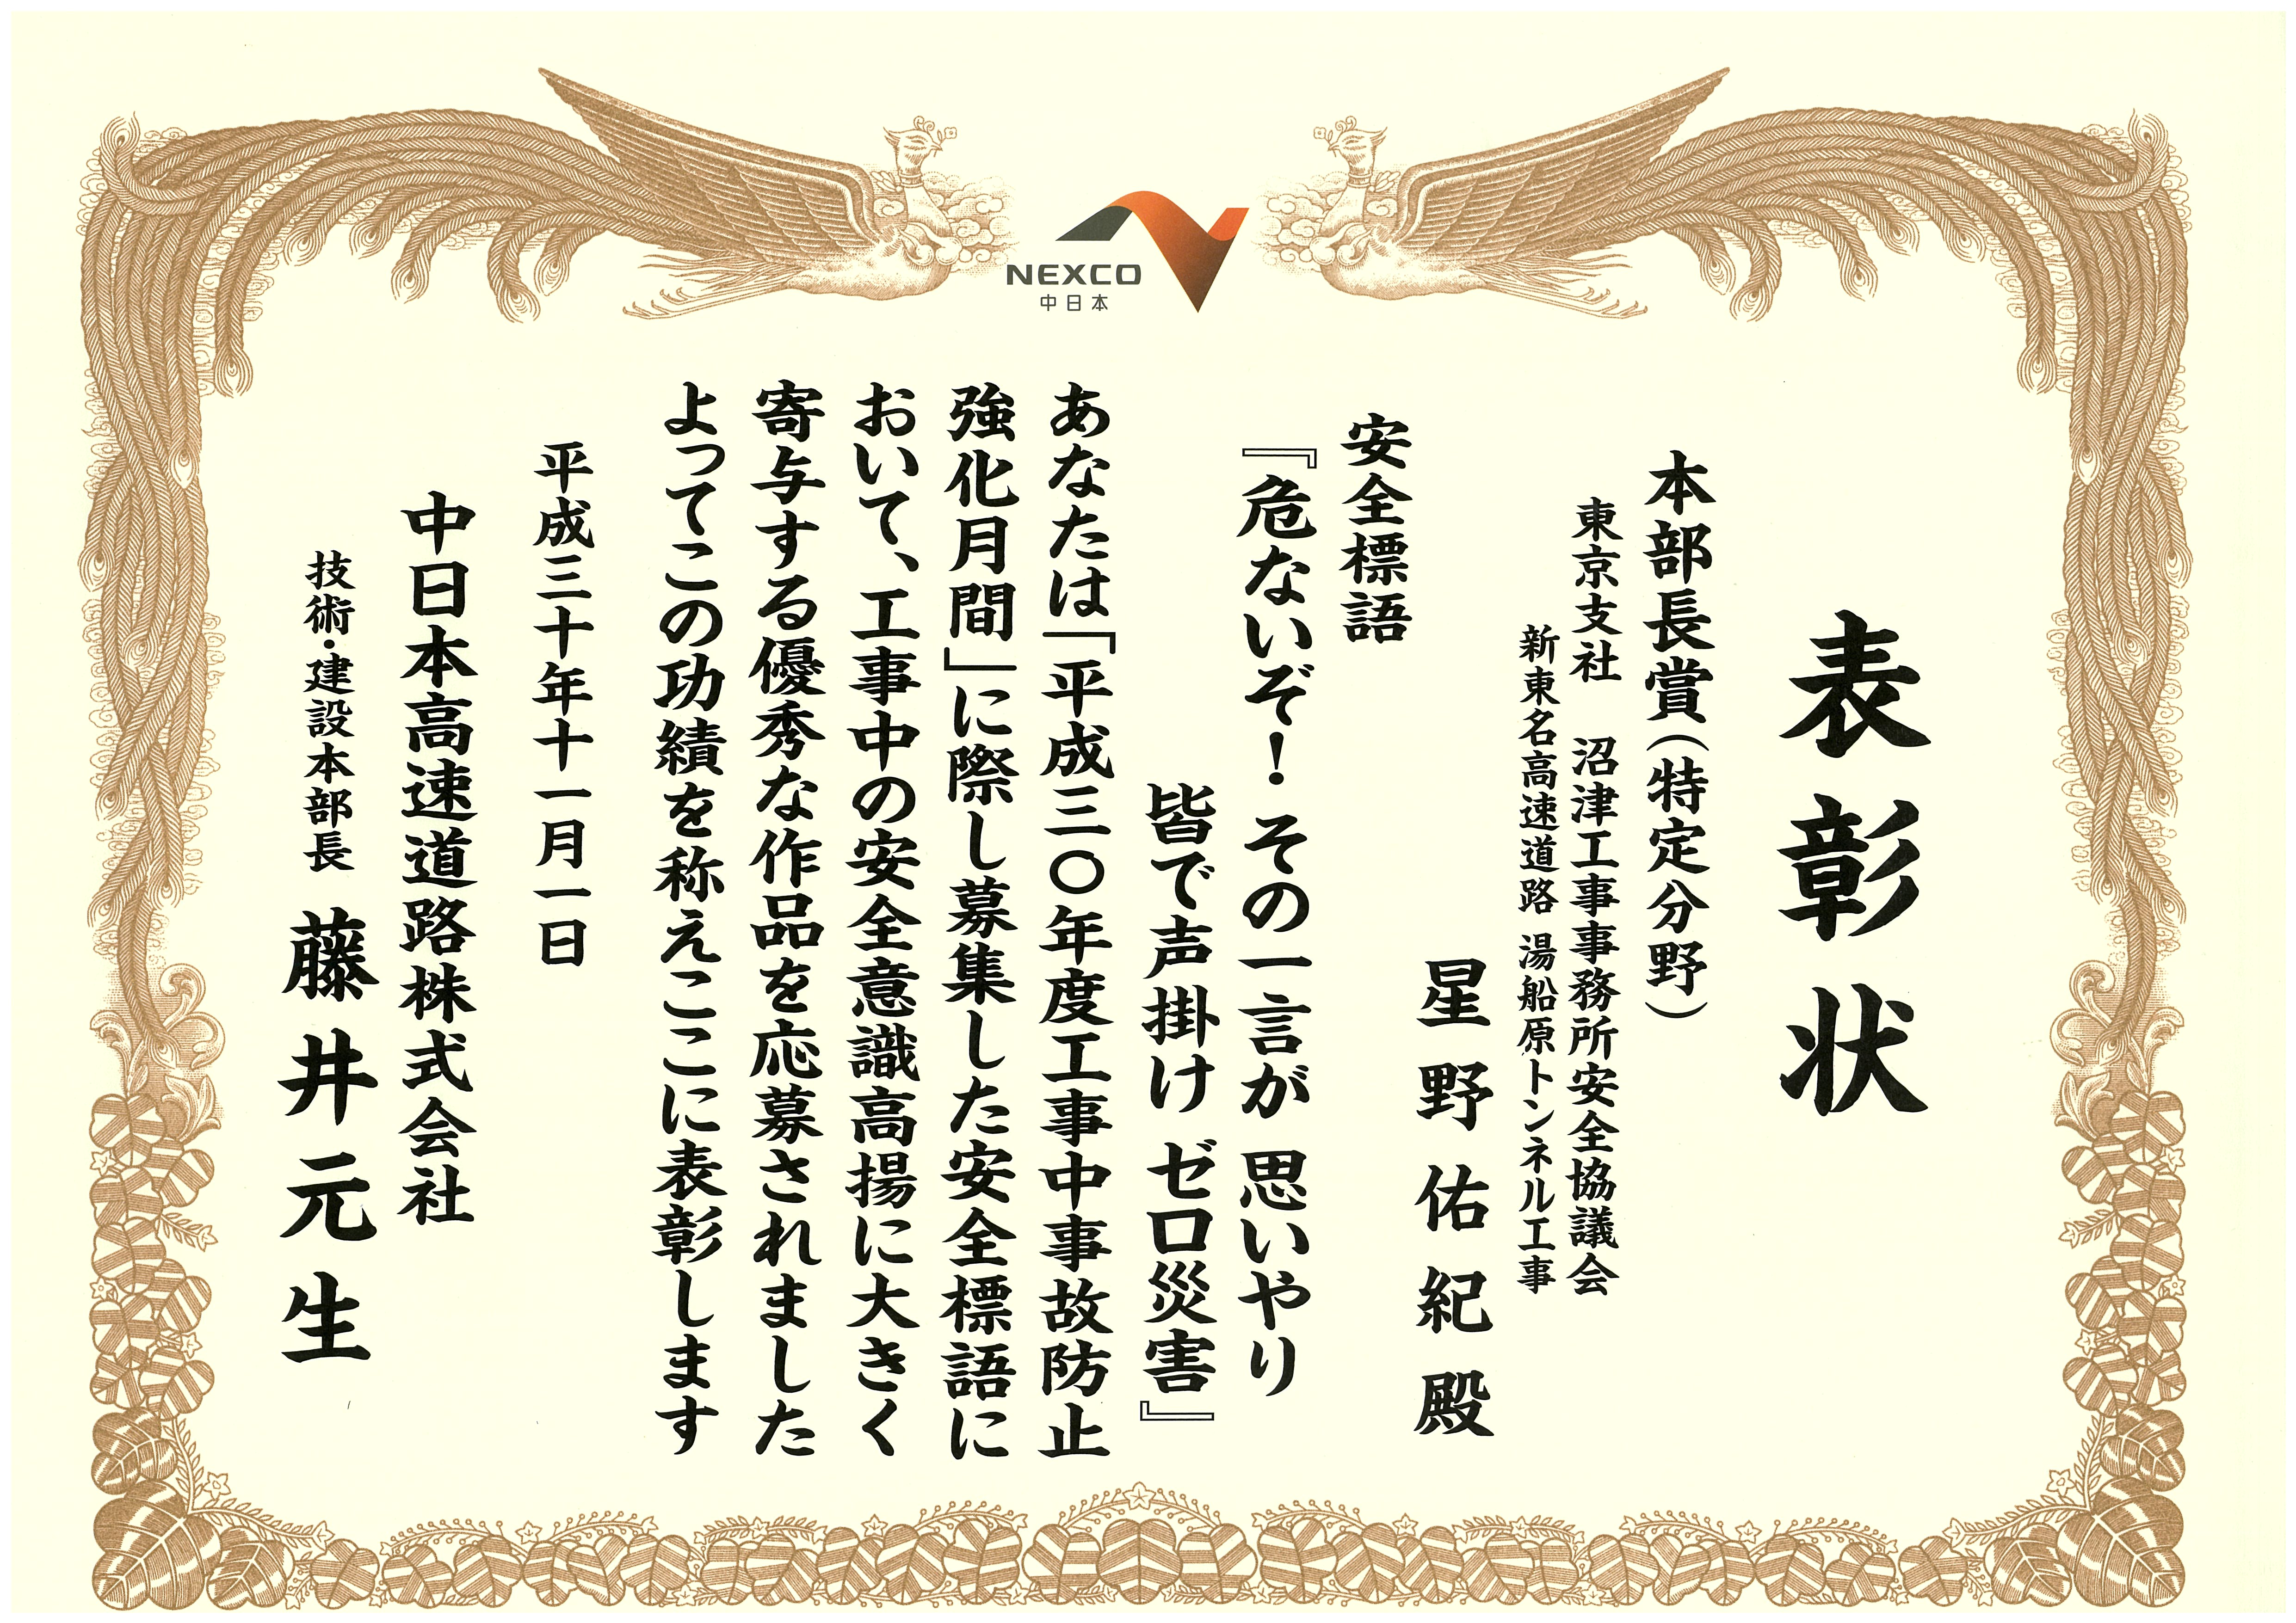 NEXCO
中日本
表彰状
本部長賞（特定分野）
東京支社　沼津工事事務所安全協議会
新東名高速道路　湯船原トンネル工事
星野佑紀殿
安全標語
『危ないぞ！その一言が　思いやり
皆で声掛け　ゼロ災害』
あなたは「平成三〇年度工事中事故防止
強化月間」に際し募集した安全標語に
おいて、工事中の安全意識高揚に大きく
寄与する優秀な作品を応募されました
よってこの功績を称えここに表彰します
平成三十年十一月一日
中日本高速道路株式会社
技術・建設本部長　藤井元生